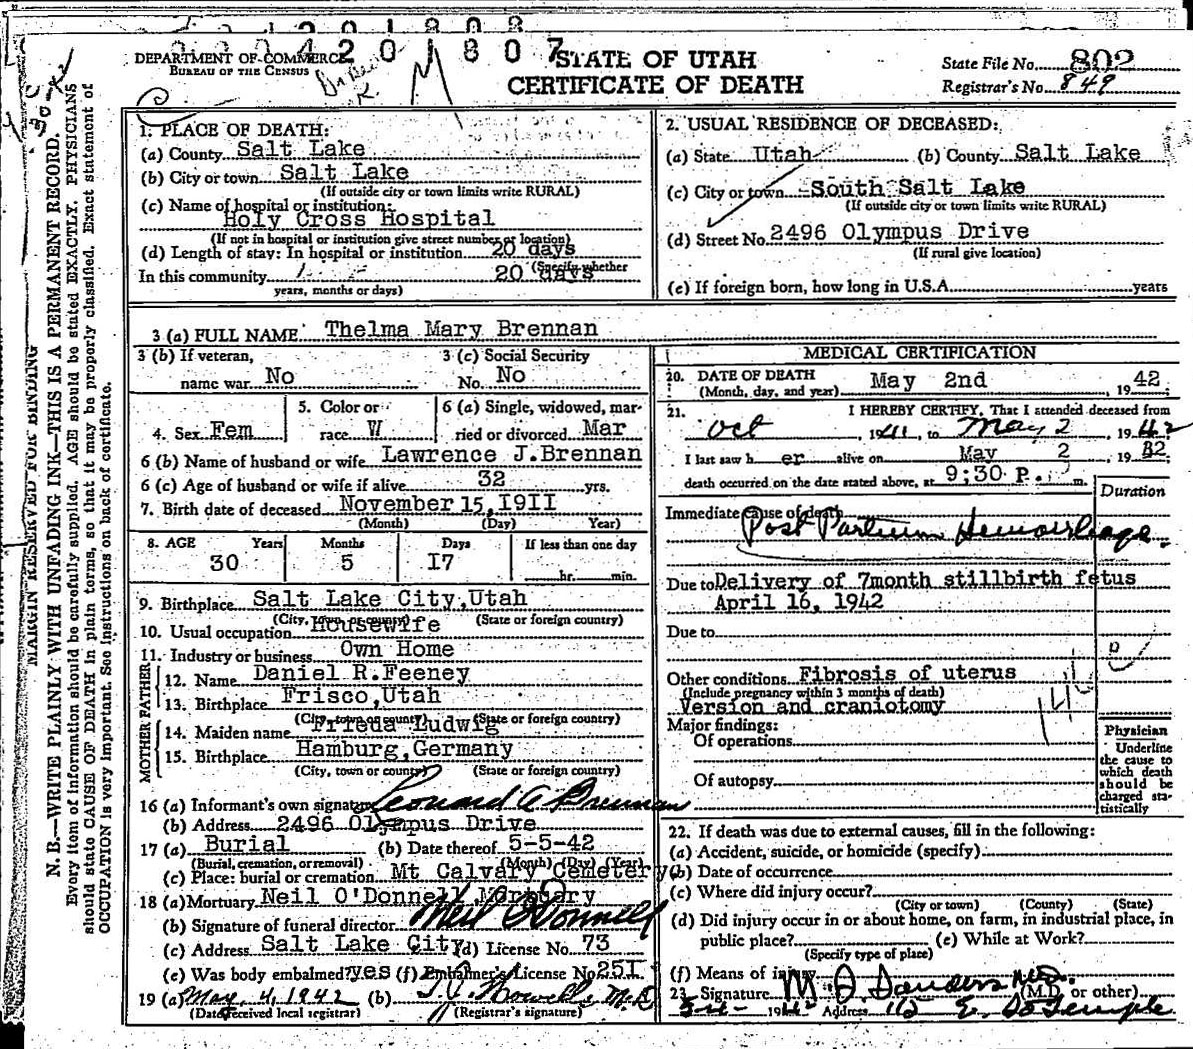 4 2 0 1 8 0 7
DEPARTMENT OF COMMERCE
BUREAU OF THE CENSUS
STATE OF UTAH
CERTIFICATE OF DEATH
State File No. 802
Registrar's No. 849
MARGIN RESERVED FOR BINDING
N. B.—WRITE PLAINLY WITH UNFADING INK—THIS IS A PERMANENT RECORD.
Every item of information should be carefully supplied. AGE should be stated EXACTLY. PHYSICIANS
should state CAUSE OF DEATH in plain terms, so that it may be properly classified. Exact statement of
OCCUPATION is very important. See instructions on back of certificate.
1. PLACE OF DEATH:
(a) County Salt Lake
(b) City or town Salt Lake
(If outside city or town limits write RURAL)
(c) Name of hospital or institution:
Holy Cross Hospital
(If not in hospital or institution give street number or location)
(d) Length of stay: In hospital or institution 20 days
(Specify whether
In this community 20 days
years, months or days)
2. USUAL RESIDENCE OF DECEASED:
(a) State Utah (b) County Salt Lake
(c) City or town South Salt Lake
(If outside city or town limits write RURAL)
(d) Street No. 2496 Olympus Drive
(If rural give location)
(e) If foreign born, how long in U.S.A. years
3 (a) FULL NAME Thelma Mary Brennan
3 (b) If veteran, name war No
3 (c) Social Security No. No
4. Sex Fem
5. Color or race W
6 (a) Single, widowed, married or divorced Mar
6 (b) Name of husband or wife Lawrence J.Brennan
6 (c) Age of husband or wife if alive 32 yrs.
7. Birth date of deceased November 15, 1911
(Month) (Day) Year)
8. AGE Years Months Days If less than one day
30 5 17 hr. min.
9. Birthplace Salt Lake City,Utah
(City, town or county) (State or foreign country)
10. Usual occupation Housewife
11. Industry or business Own Home
FATHER
12. Name Daniel R.Feeney
13. Birthplace Frisco,Utah
(City, town or county) (State or foreign country)
MOTHER
14. Maiden name Frieda Ludwig
15. Birthplace Hamburg,Germany
(City, town or county) (State or foreign country)
16 (a) Informant's own signature Leonard A Brennan
(b) Address 2496 Olympus Drive
17 (a) Burial (b) Date thereof 5-5-42
(Burial, cremation, or removal) (Month) (Day) (Year)
(c) Place: burial or cremation Mt Calvary Cemetery
18 (a) Mortuary Neil O'Donnell Mortuary
(b) Signature of funeral director Neil O'Donnell
(c) Address Salt Lake City (d) License No. 73
(e) Was body embalmed? yes (f) Embalmer's License No. 251
19 (a) May 4, 1942 (b) M.D.
(Date received local registrar) (Registrar's signature)
MEDICAL CERTIFICATION
20. DATE OF DEATH May 2nd, 1942
(Month, day, and year)
21. I HEREBY CERTIFY, That I attended deceased from
Oct, 1941, to May 2, 1942
I last saw her alive on May 2, 19
death occurred on the date stated above, at 9:30 P. m.
Duration
Immediate cause of death
Post Partum Hemorrhage.
Due to Delivery of 7month stillbirth fetus
April 16, 1942
Due to
Other conditions Fibrosis of uterus
(Include pregnancy within 3 months of death)
Version and craniotomy
Major findings:
Of operations
Of autopsy
Physician
Underline
the cause to
which death
should be
charged sta-
tistically
22. If death was due to external causes, fill in the following:
(a) Accident, suicide, or homicide (specify)
(b) Date of occurrence
(c) Where did injury occur?
(City or town) (County) (State)
(d) Did injury occur in or about home, on farm, in industrial place, in
public place? (e) While at Work?
(Specify type of place)
(f) Means of injury
23. Signature M J Sanders M.D. (M.D. or other)
Address E. So Temple